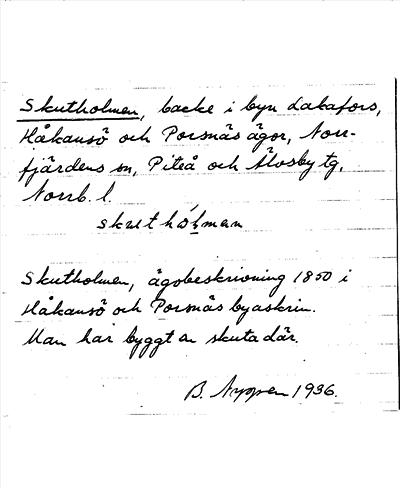 Skutholmen, backe i byn Lakafors,
Håkansö och Porsnäs ägor, Norr-
fjärdens sn, Piteå och Älvsby tg,
Norrb. l.
skuthólman
Skutholmen, ägobeskrivning 1850 i
Håkansö och Porsnäs byaskrin.
Man har byggt en skuta där.
B. Nyppen 1936.